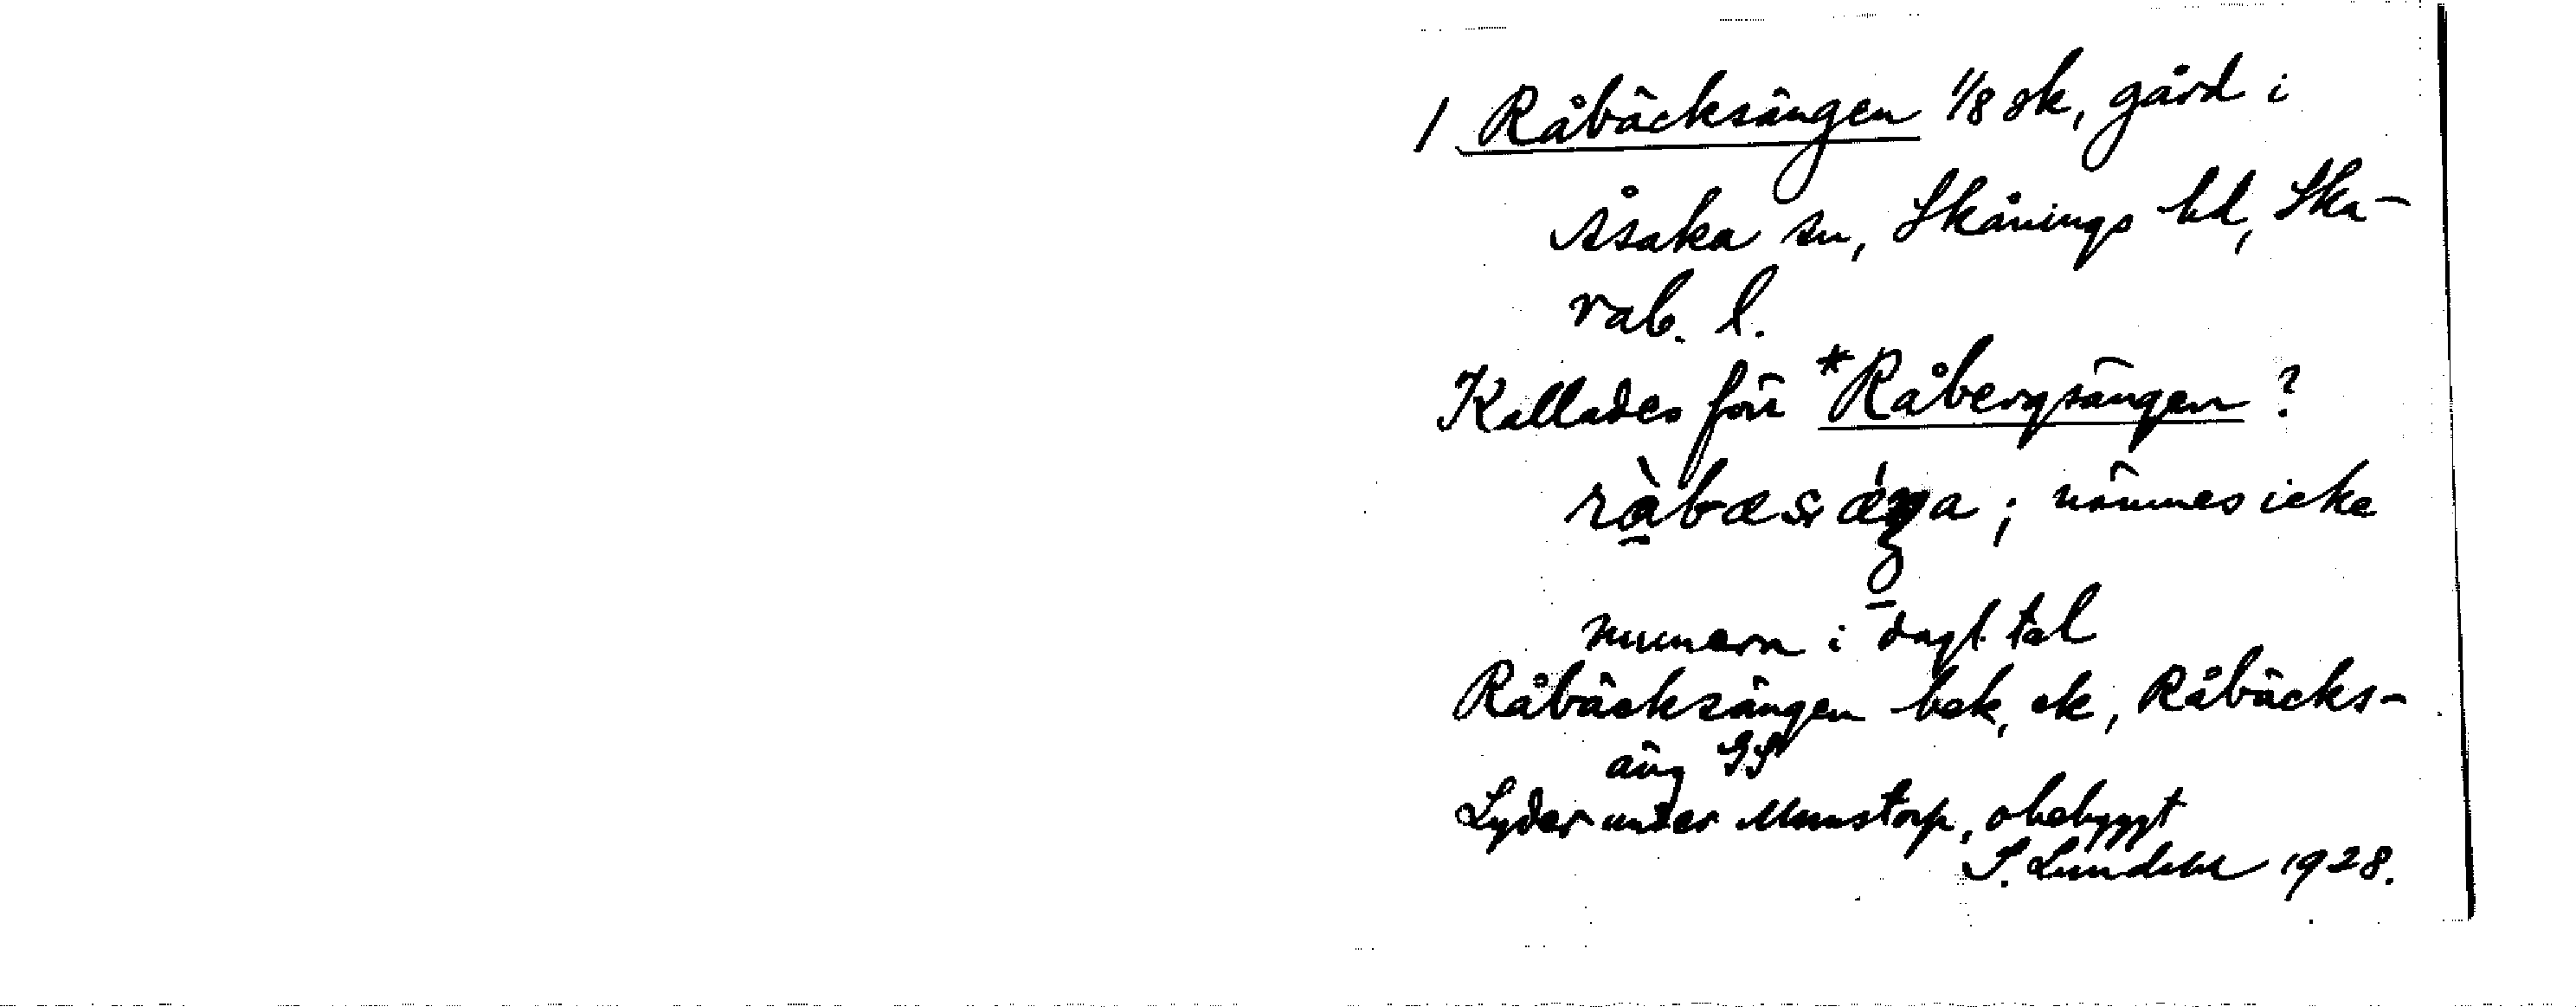 1 Råbäcksängen 1/8 sk, gård i
Åsaka sn, Skånings hd, Ska-
rab. l.
Kallades förr *Råbergsängen?
ràbæsæŋa; nämnes icke
numera i dagl. tal
Råbäcksängen bek, ek, Råbäcks-
äng GS
Lyder under Munstorp, obebyggt
S. Lundahl 1928.